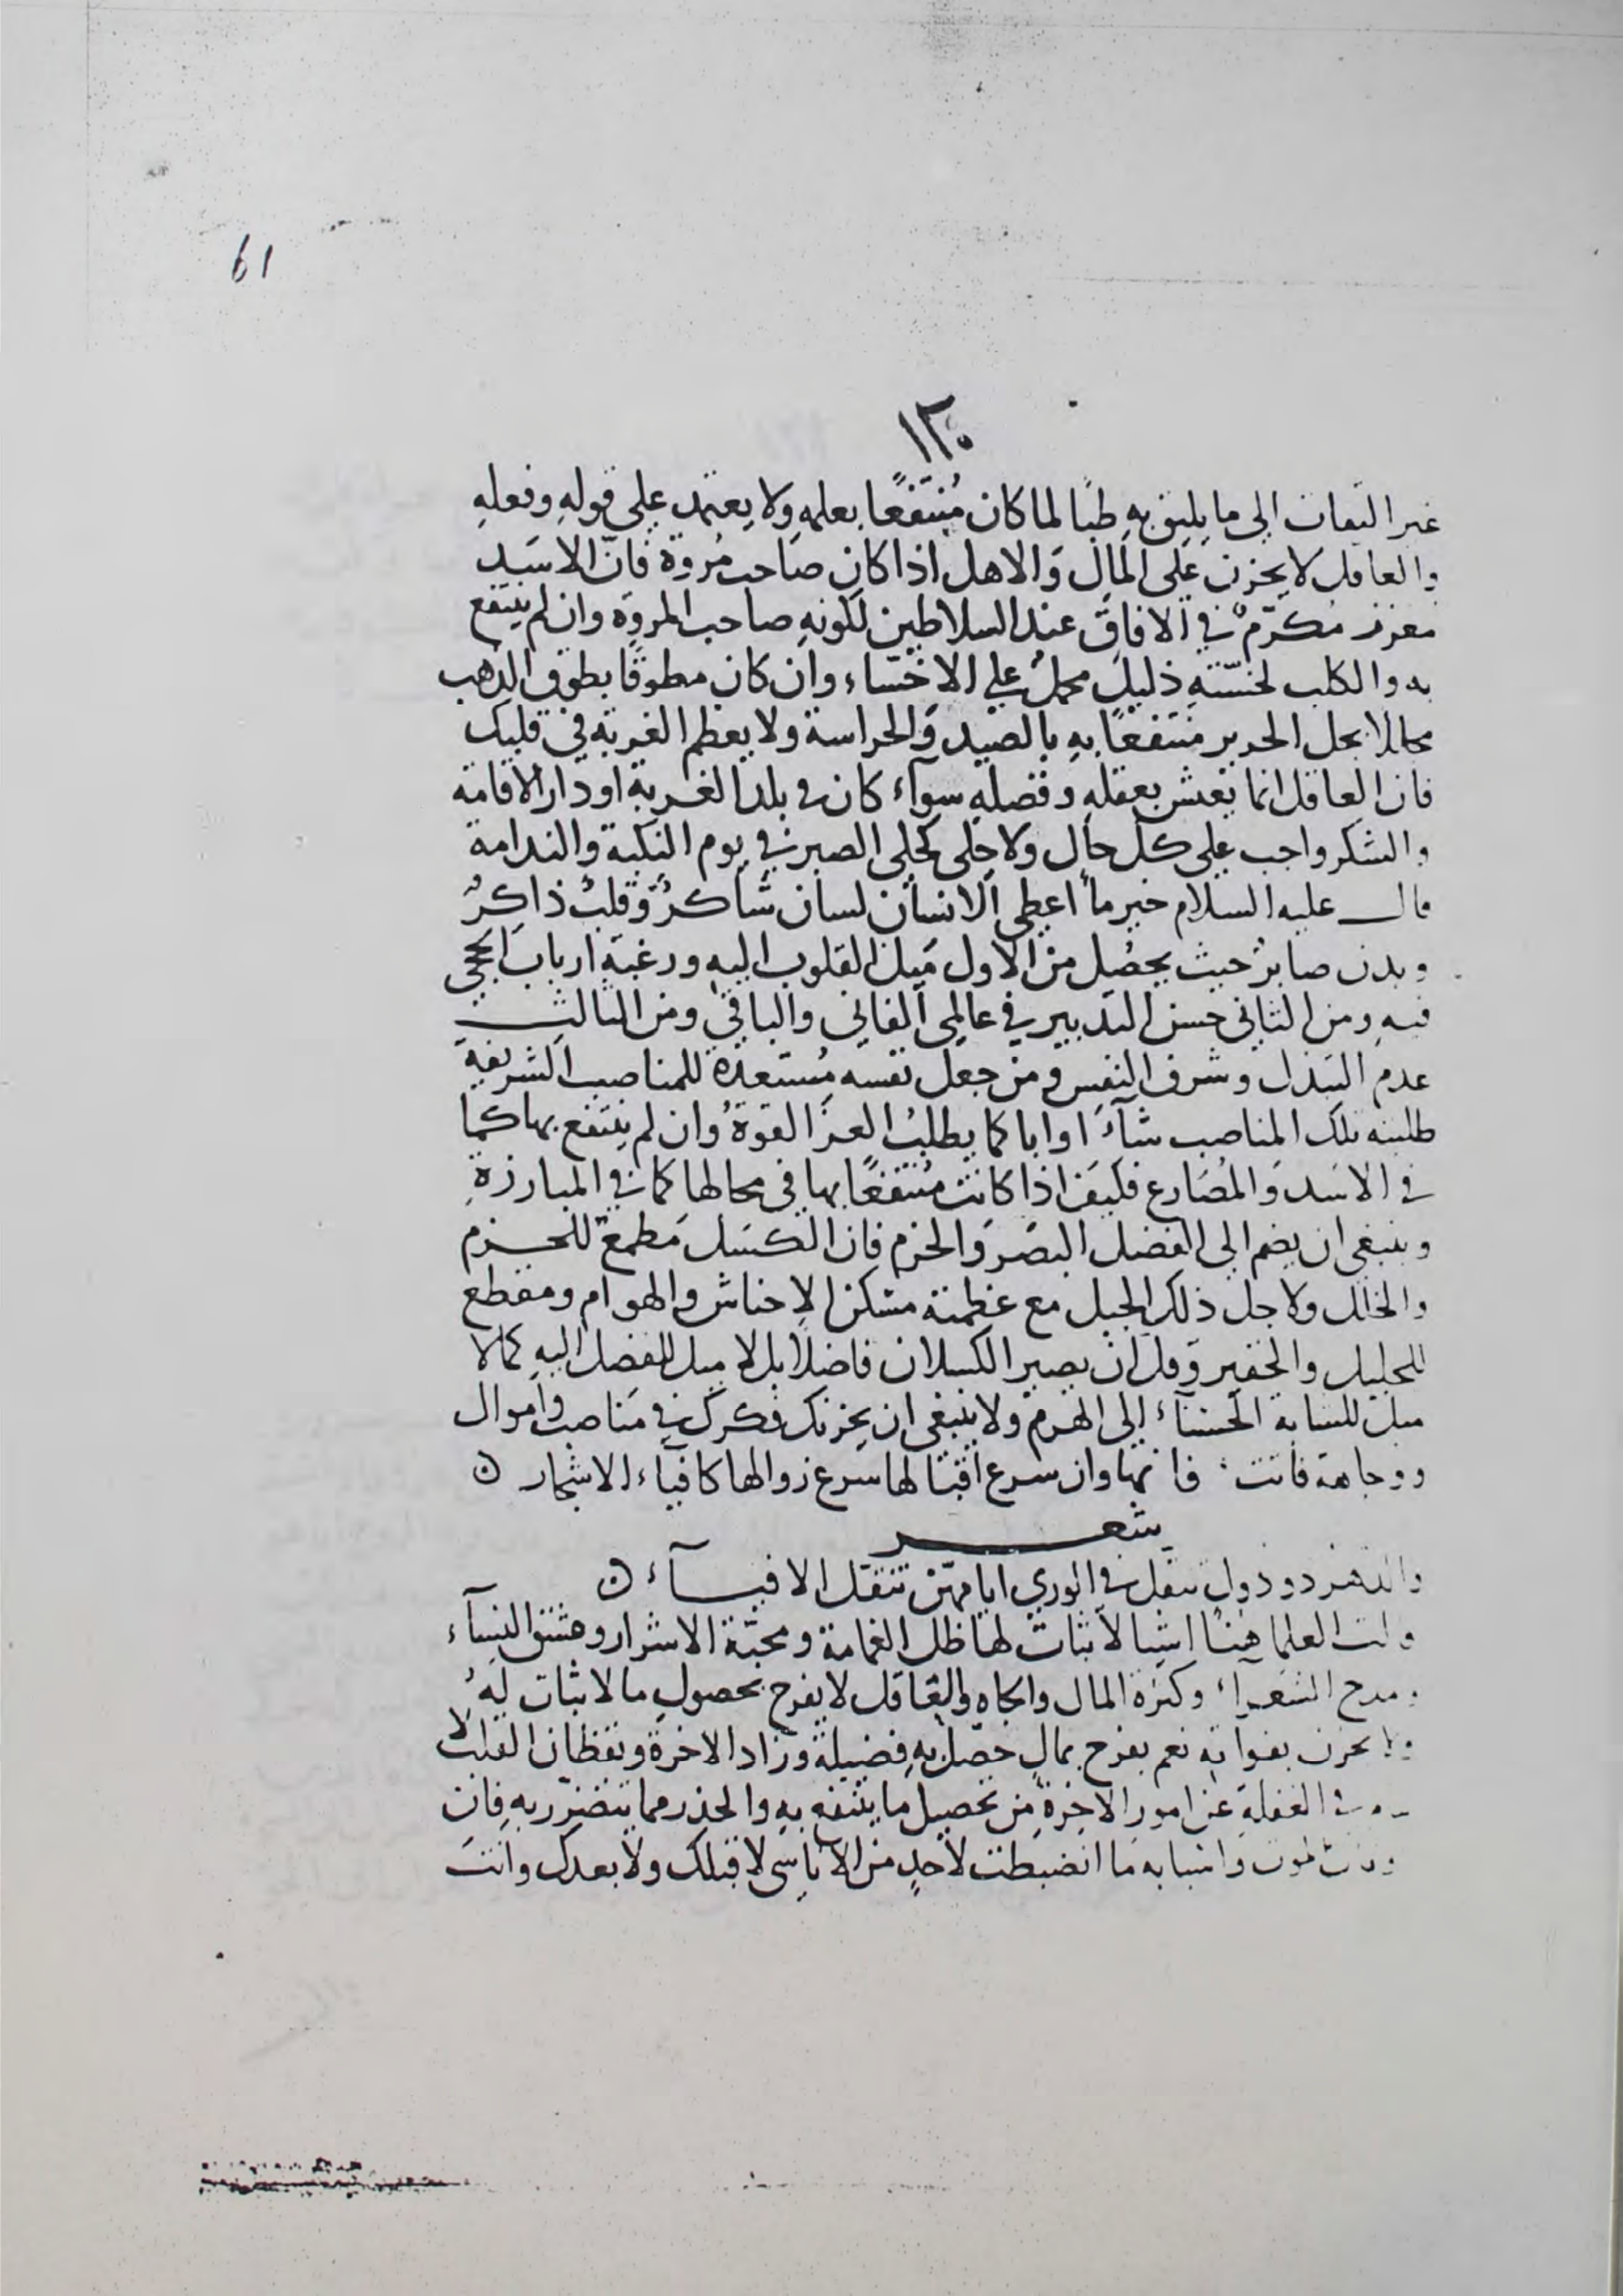 61
١٣٠
غير التفات الى ما يليق به طبا لما كان مُنتفعًا بعلمه ولا يعتمد على قولهِ وفعلهِ
والعاقل لا يحزن على المال وَالاهل اذا كان صَاحب مُروة فانّ الاسَد
معزز مُكرّمٌ في الافاق عند السلاطين لكونهِ صاحب المروة وان لم ينتفع
به والكلب لخسّتهِ ذليل محمل على الاخسّاء وان كان مطوقًا بطوق الذهب
مجللا بجل الحرير منتفعًا بهِ بالصيد وَالحراسة ولا يعظم الغربة في قلبك
فان العاقل انما يعيش بعقلهِ وفضلهِ سوآء كان في بلد الغربة او دار الاقامة
والشكر واجب على كل حال ولا حلى كحلى الصبر في يوم النكبة والندامة
قال عليه السلام خير ما اعطى الانسان لسان شاكرٌ وَقلبٌ ذاكرٌ
وبدن صابرٌ حيث يحصُل من الاول مَيل القلوب اليه ورغبة ارباب الحجى
فيهِ ومن الثانى حسن التدبير في عالمى الفانى والباقى ومن الثالث
عدم التبذل وشرف النفس ومن جعل نفسه مُستعدة للمناصب الشريفة
طلبته تلك المناصب شآءَ او ابا كما يطلبُ العزَ القوةُ وان لم ينتفع بها كما
في الاسَد وَالمُصَارع فكيف اذا كانت مُنتفعًا بها في محالها كما في المبارزةِ
وينبغى ان يضم الى الفضل البصَر وَالحزم فان الكسَل مَطمع للحزم
والخلل ولاجل ذلك الجبل مع عظمته مسكن الاحناش والهوام ومقطع
للجليل والحقير وقل ان يصير الكسلان فاضلًا بل لا ميل للفضل اليه كما لا
ميل للشابة الحسنآء الى الهرم ولا ينبغى ان يحزنك فكرك في مَناصب وَاموال
ووجاهة فاتت فانها وان سرع اقبالها سَرع زوالها كافيآء الاشجار ن
شعر
والدهر ذو دول تنقل في الورى ايامهنّ تنقل الافيآء ن
وقالت العلما هنا اشيا لا ثبات لها ظل الغمامة ومحبّة الاشرار وعشق النسآء
ومدح الشعرآء وكثرة المال والجاه والعاقل لا يفرح بحصولِ ما لا ثبات لهُ
ولا يحزن بفواته نعم يفرح بمالٍ حصّل بهِ فضيلة وزاد الاخرة ويقظان القلب لا
في الغفلة عن امور الاخرة من تحصيل ما ينتفع بهِ والحذر مما يتضرّر بهِ فان
الموت واسبابه مَا انضبطت لاَحدٍ من الاناسى لا قبلك ولا بعدك وانتَ